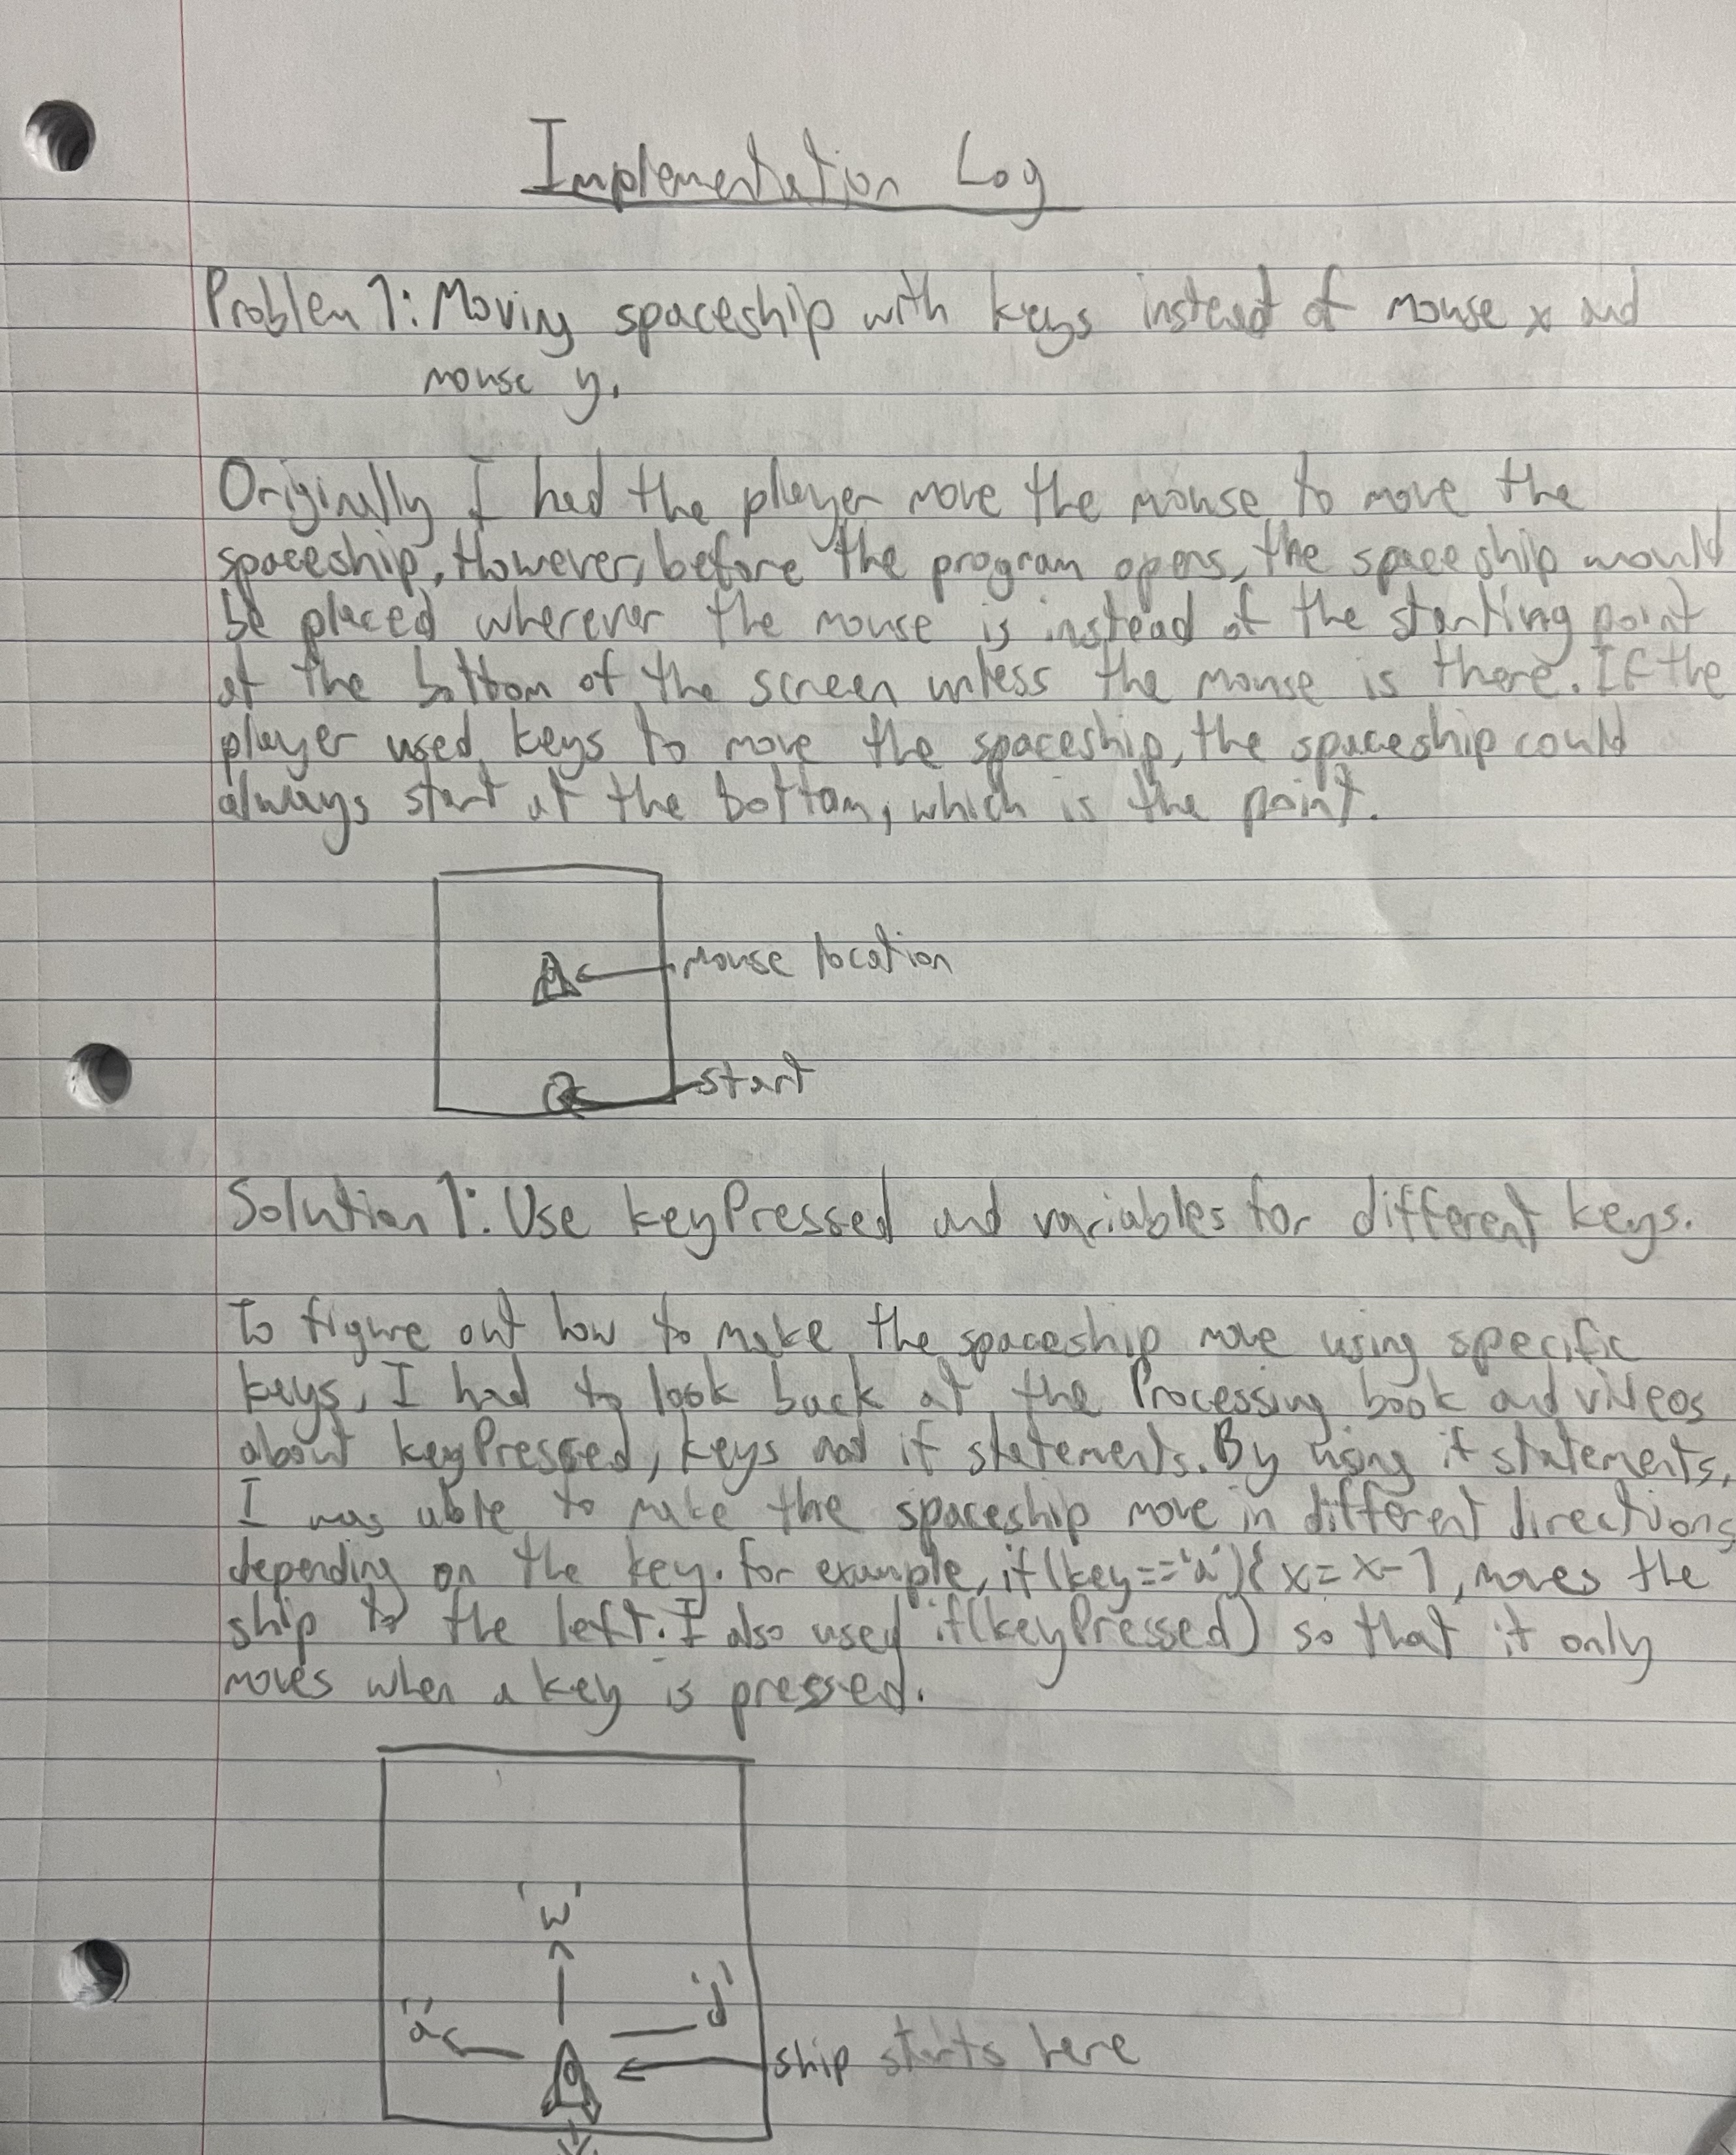 Implementation Log
Problem 1: Moving spaceship with keys instead of mouse x and
mouse y.
Originally I had the player move the mouse to move the
spaceship. However, before the program opens, the spaceship would
be placed wherever the mouse is instead of the starting point
at the bottom of the screen unless the mouse is there. If the
player used keys to move the spaceship, the spaceship could
always start at the bottom, which is the point.
mouse location
start
Solution 1: Use keyPressed and variables for different keys.
To figure out how to make the spaceship move using specific
keys, I had to look back at the Processing book and videos
about keyPressed, keys and if statements. By using if statements,
I was able to make the spaceship move in different directions
depending on the key. For example, if(key=='a'){x=x-1, moves the
ship to the left. I also used if(keyPressed) so that it only
moves when a key is pressed.
'w'
'd'
'a'
ship starts here